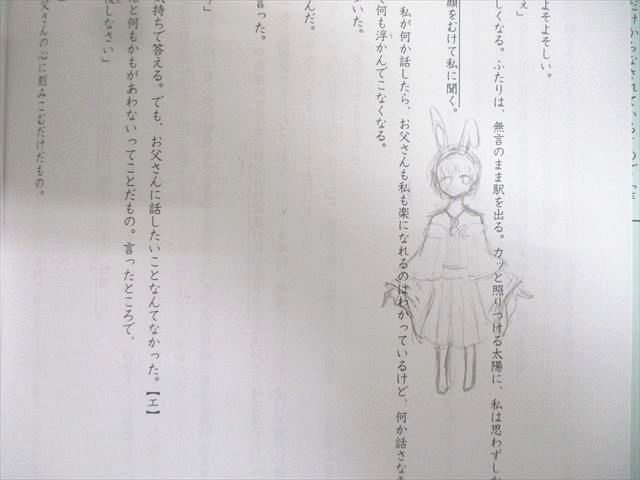 よそよそしい。
え」
しくなる。ふたりは、無言のまま駅を出る。カッと照りつける太陽に、私は思わずしか
顔をむけて私に聞く。
私が何か話したら、お父さんも私も楽になれるのはわかっているけど、何か話さなき
て何も浮かんでこなくなる。
いた。
んだ。
言った。
」
気持ちで答える。でも、お父さんに話したいことなんてなかった。【エ】
と何もかもがあわないってことだもの。言ったところで、
しなさい」
お父さんの心に刻みこむだけだもの。